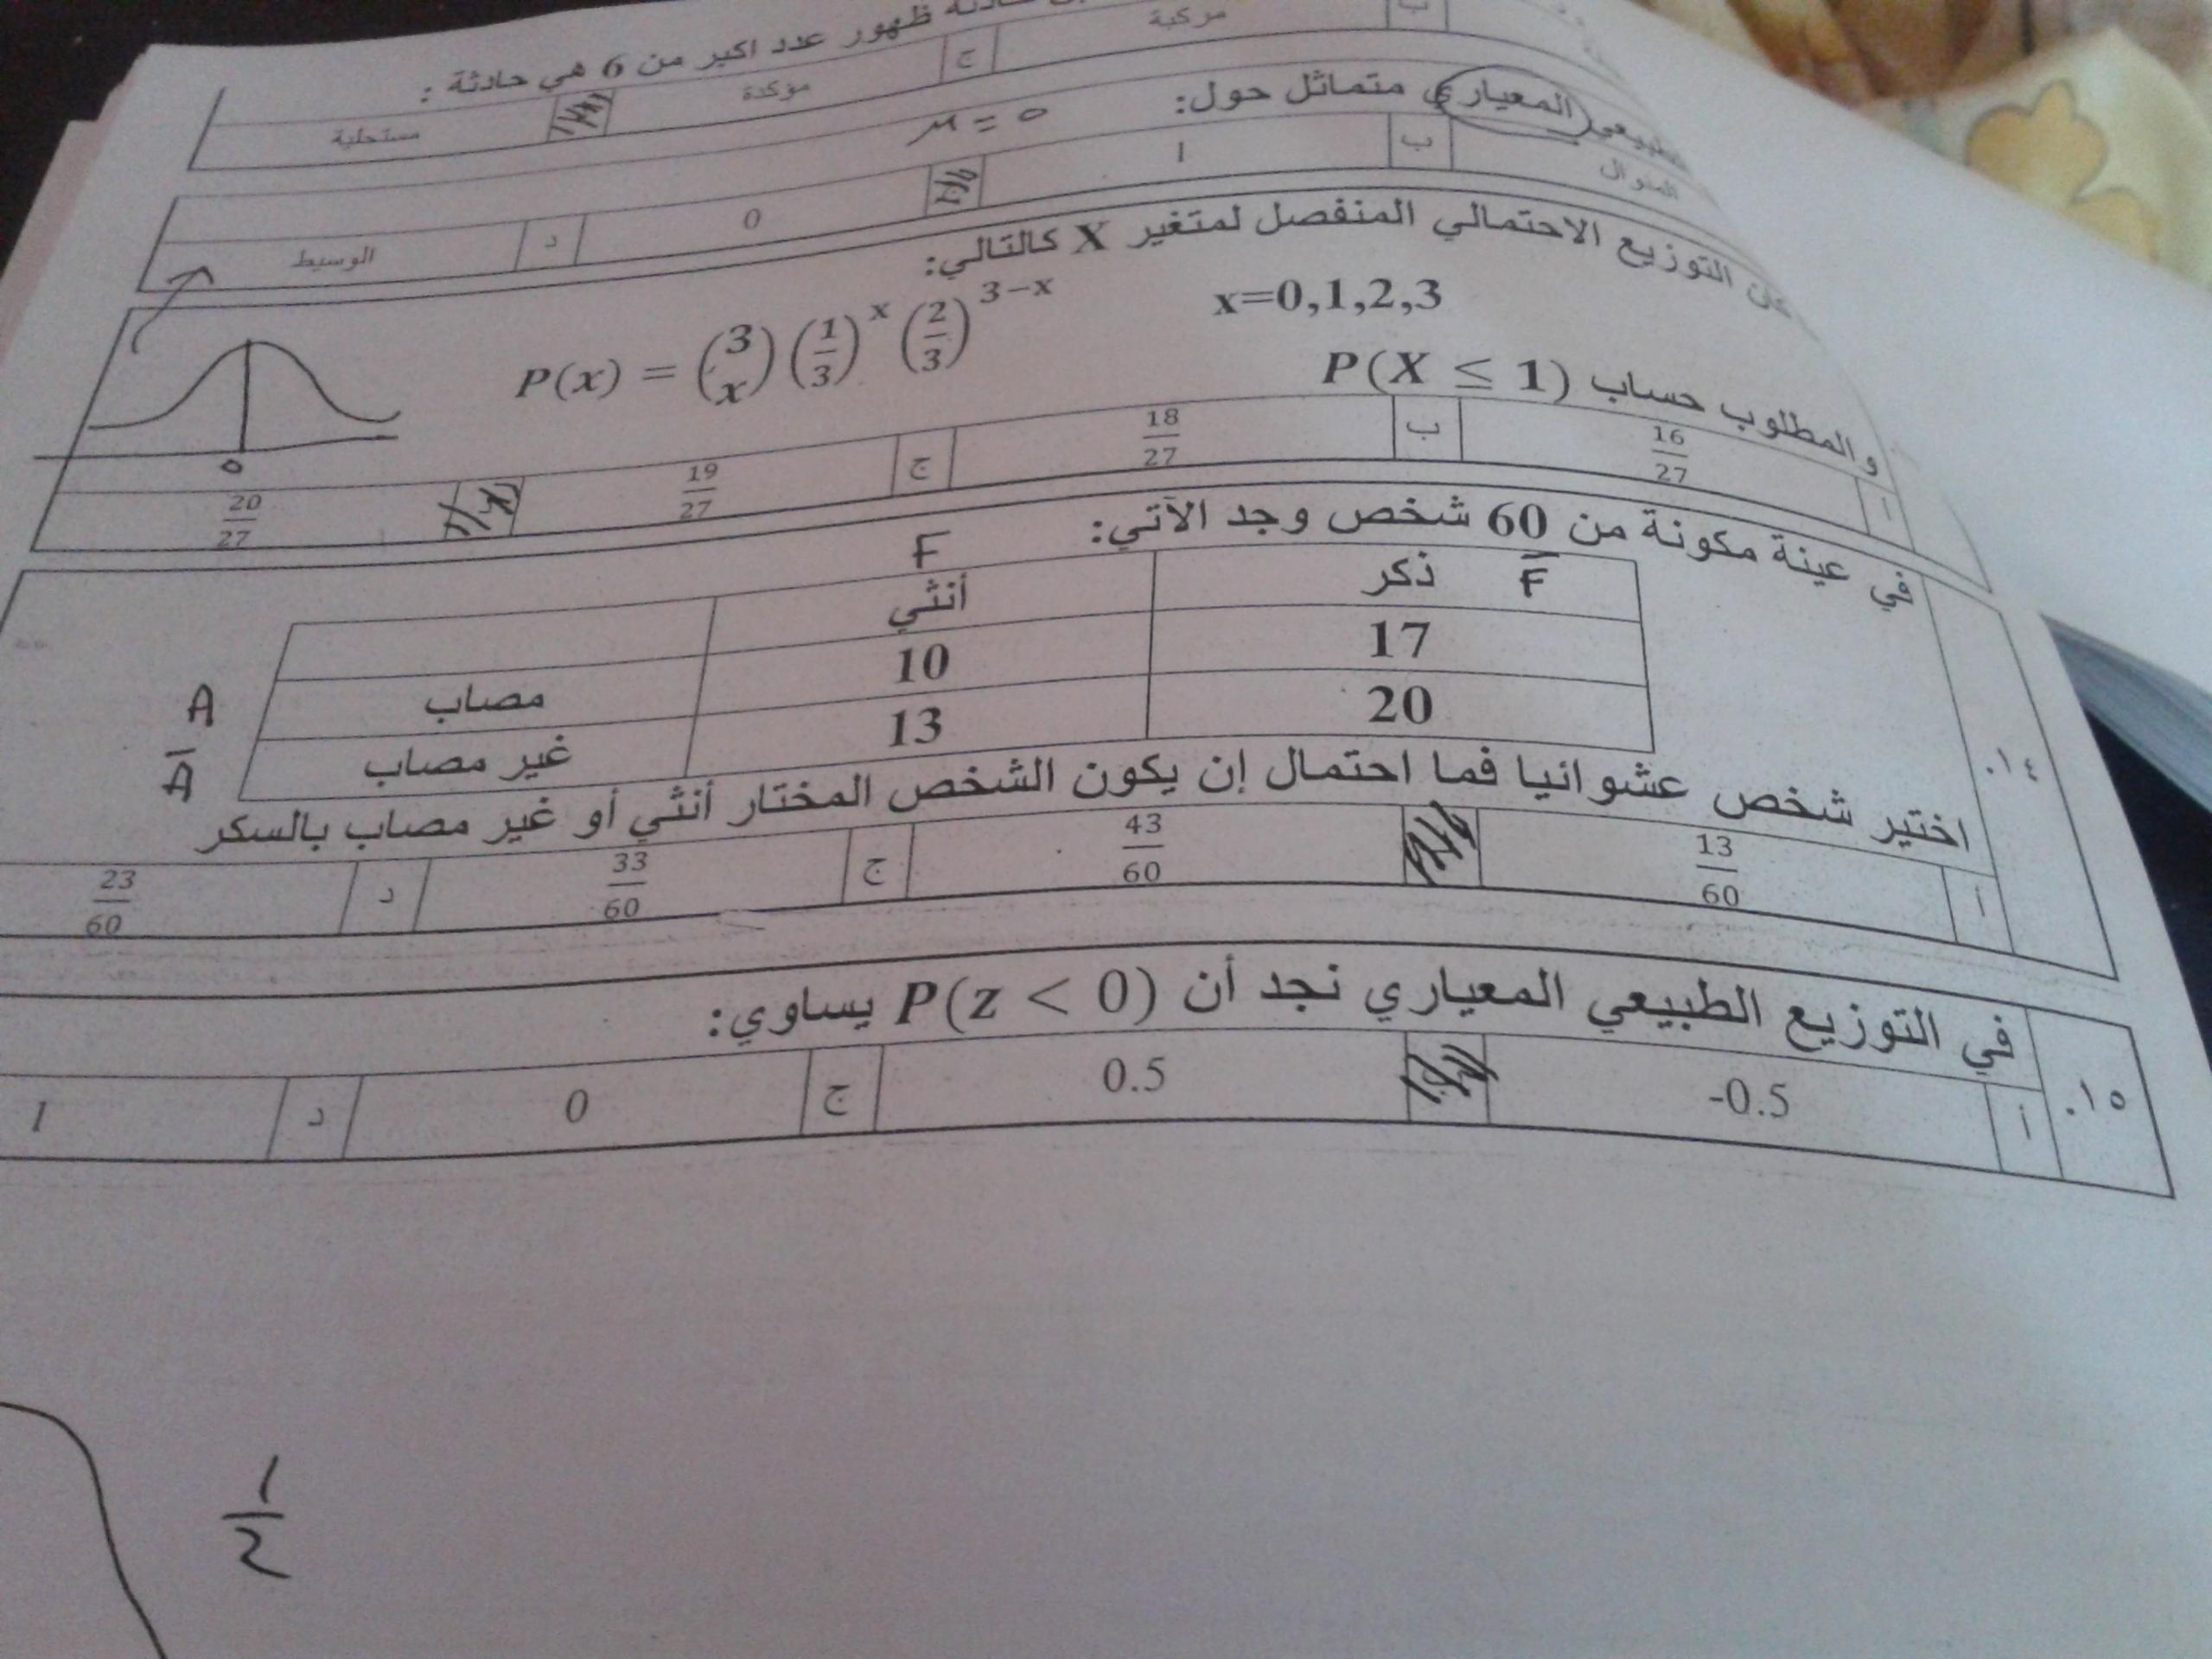 ظهور عدد اكبر من 6 هي حادثة :
مركبة ج مؤكدة مستحلية
المعياري متماثل حول: μ = 0
المنوال ب 1 0 د الوسيط
التوزيع الاحتمالي المنفصل لمتغير X كالتالي:
P(x) = (3 x) (1/3)^x (2/3)^(3−x) x=0,1,2,3
والمطلوب حساب P(X ≤ 1)
0
أ 16/27 ب 18/27 ج 19/27 20/27
في عينة مكونة من 60 شخص وجد الآتي:
F̄ F
ذكر أنثي
17 10 مصاب A
20 13 غير مصاب Ā
١٤.
اختير شخص عشوائيا فما احتمال إن يكون الشخص المختار أنثي أو غير مصاب بالسكر
أ 13/60 43/60 ج 33/60 د 23/60
١٥. في التوزيع الطبيعي المعياري نجد أن P(z < 0) يساوي:
أ -0.5 0.5 ج 0 د 1
1/2